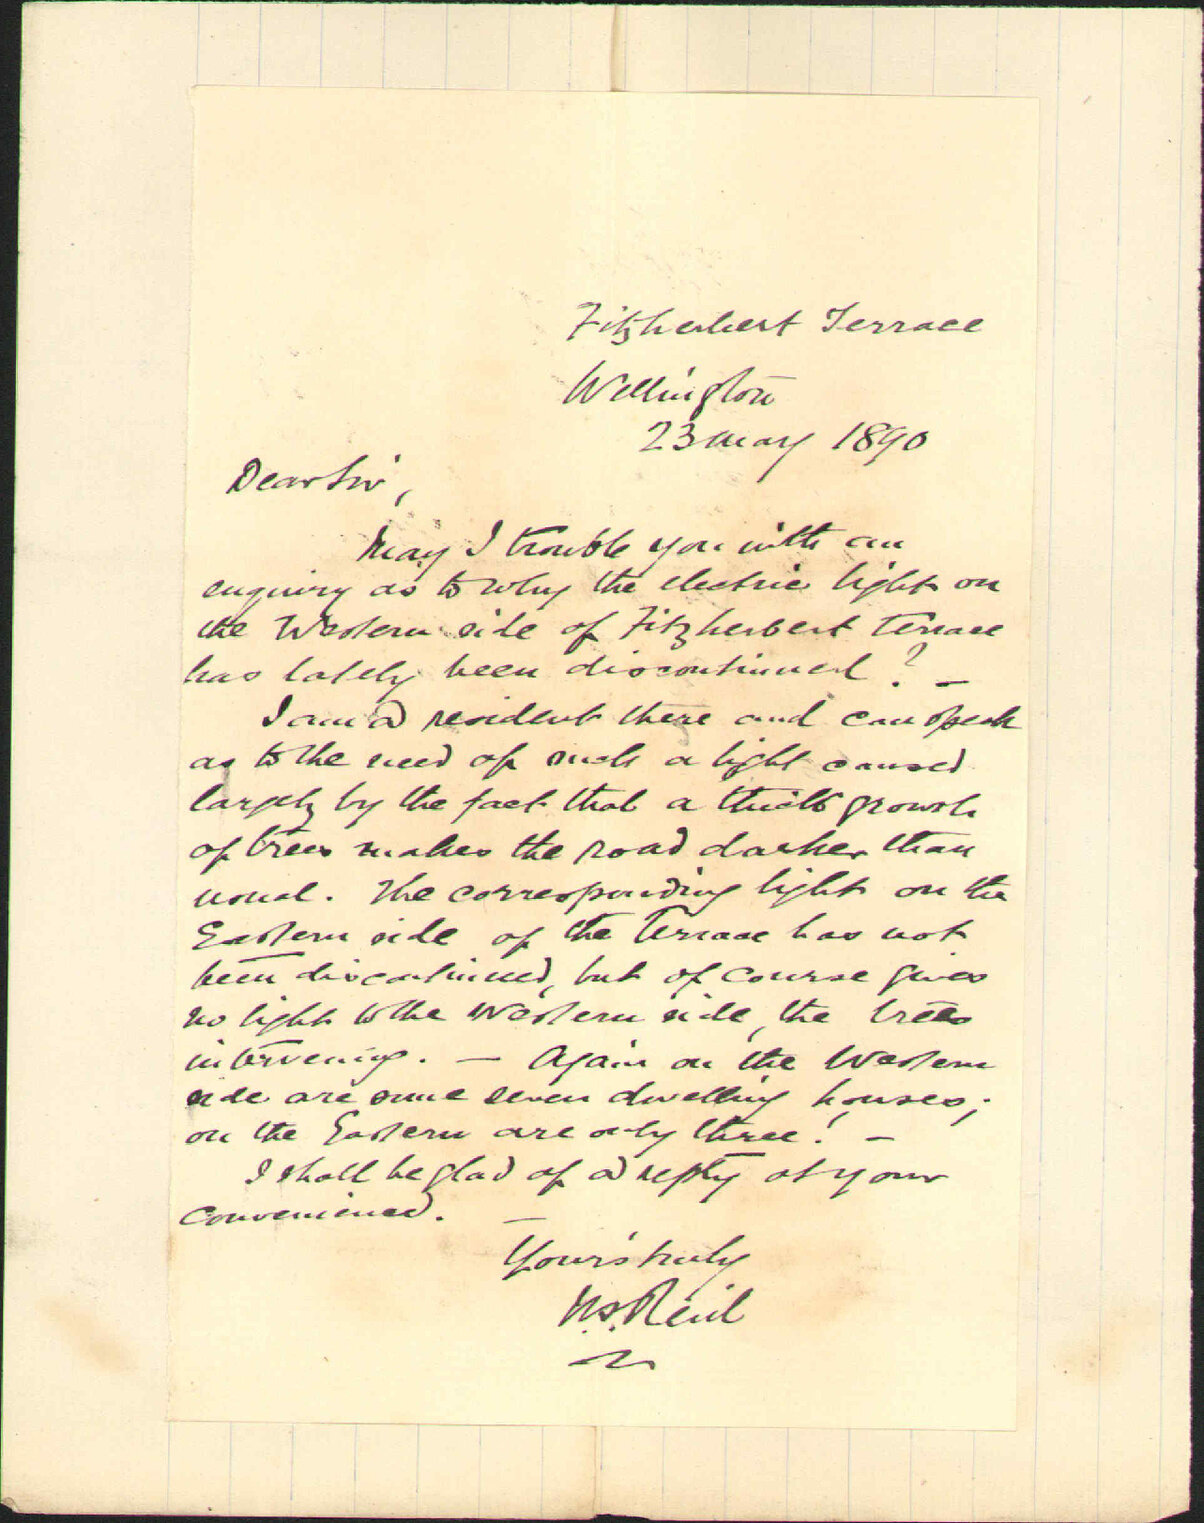 Fitzherbert Terrace
Wellington
23 May 1890
Dear Sir,
May I trouble you with an
enquiry as to why the electric light on
the Western side of Fitzherbert Terrace
has lately been discontinued ? —
I am a resident there and can speak
as to the need of such a light caused
largely by the fact that a thick growth
of trees makes the road darker than
usual. The corresponding light on the
Eastern side of the Terrace has not
been discontinued, but of course gives
no light to the Western side, the trees
intervening. — Again on the Western
side are some seven dwelling houses;
on the Eastern are only three! —
I shall be glad of a reply at your
convenience. —
Yours truly
Reid